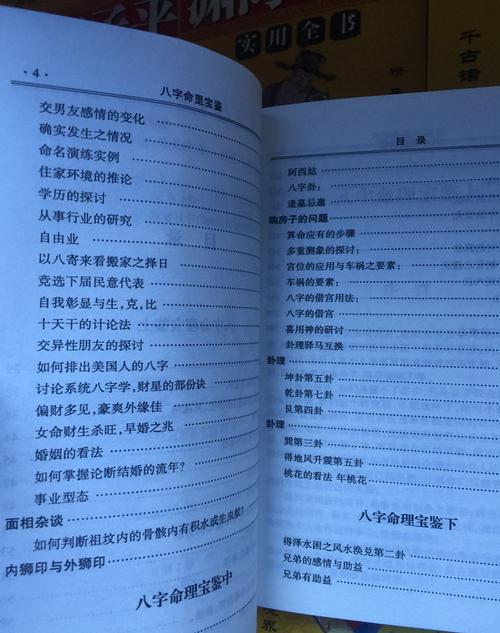 实用全书
千古诸
·4·
八字命里宝鉴
交男友感情的变化
确实发生之情况
命名演练实例
住家环境的推论
学历的探讨
从事行业的研究
自由业
以八寄来看搬家之择日
竞选下届民意代表
自我彰显与生，克，比
十天干的计论法
交异性朋友的探讨
如何排出美国人的八字
讨论系统八字学，财星的部份诀
偏财多见，豪爽外缘佳
女命财生杀旺，早婚之兆
婚姻的看法
如何掌握论断结婚的流年？
事业型态
面相杂谈
如何判断祖坟内的骨骸内有积水或生虫蚁？
内狮印与外狮印
八字命理宝鉴中
目录
阿西姑
八字卦：
逢墓忌邀
购房子的问题
算命应有的步骤
多重测象的探讨：
宫位的应用与车祸之要素：
车祸的要素：
八字的借宫用法：
八字的借宫
喜用神的研讨
卦理驿马互换
卦理
坤卦第五卦
乾卦第七卦
艮第四卦
卦理
巽第三卦
得地风升震第五卦
桃花的看法 年桃花
八字命理宝鉴下
得泽水困之风水涣兑第二卦
兄弟的感情与助益
兄弟有助益